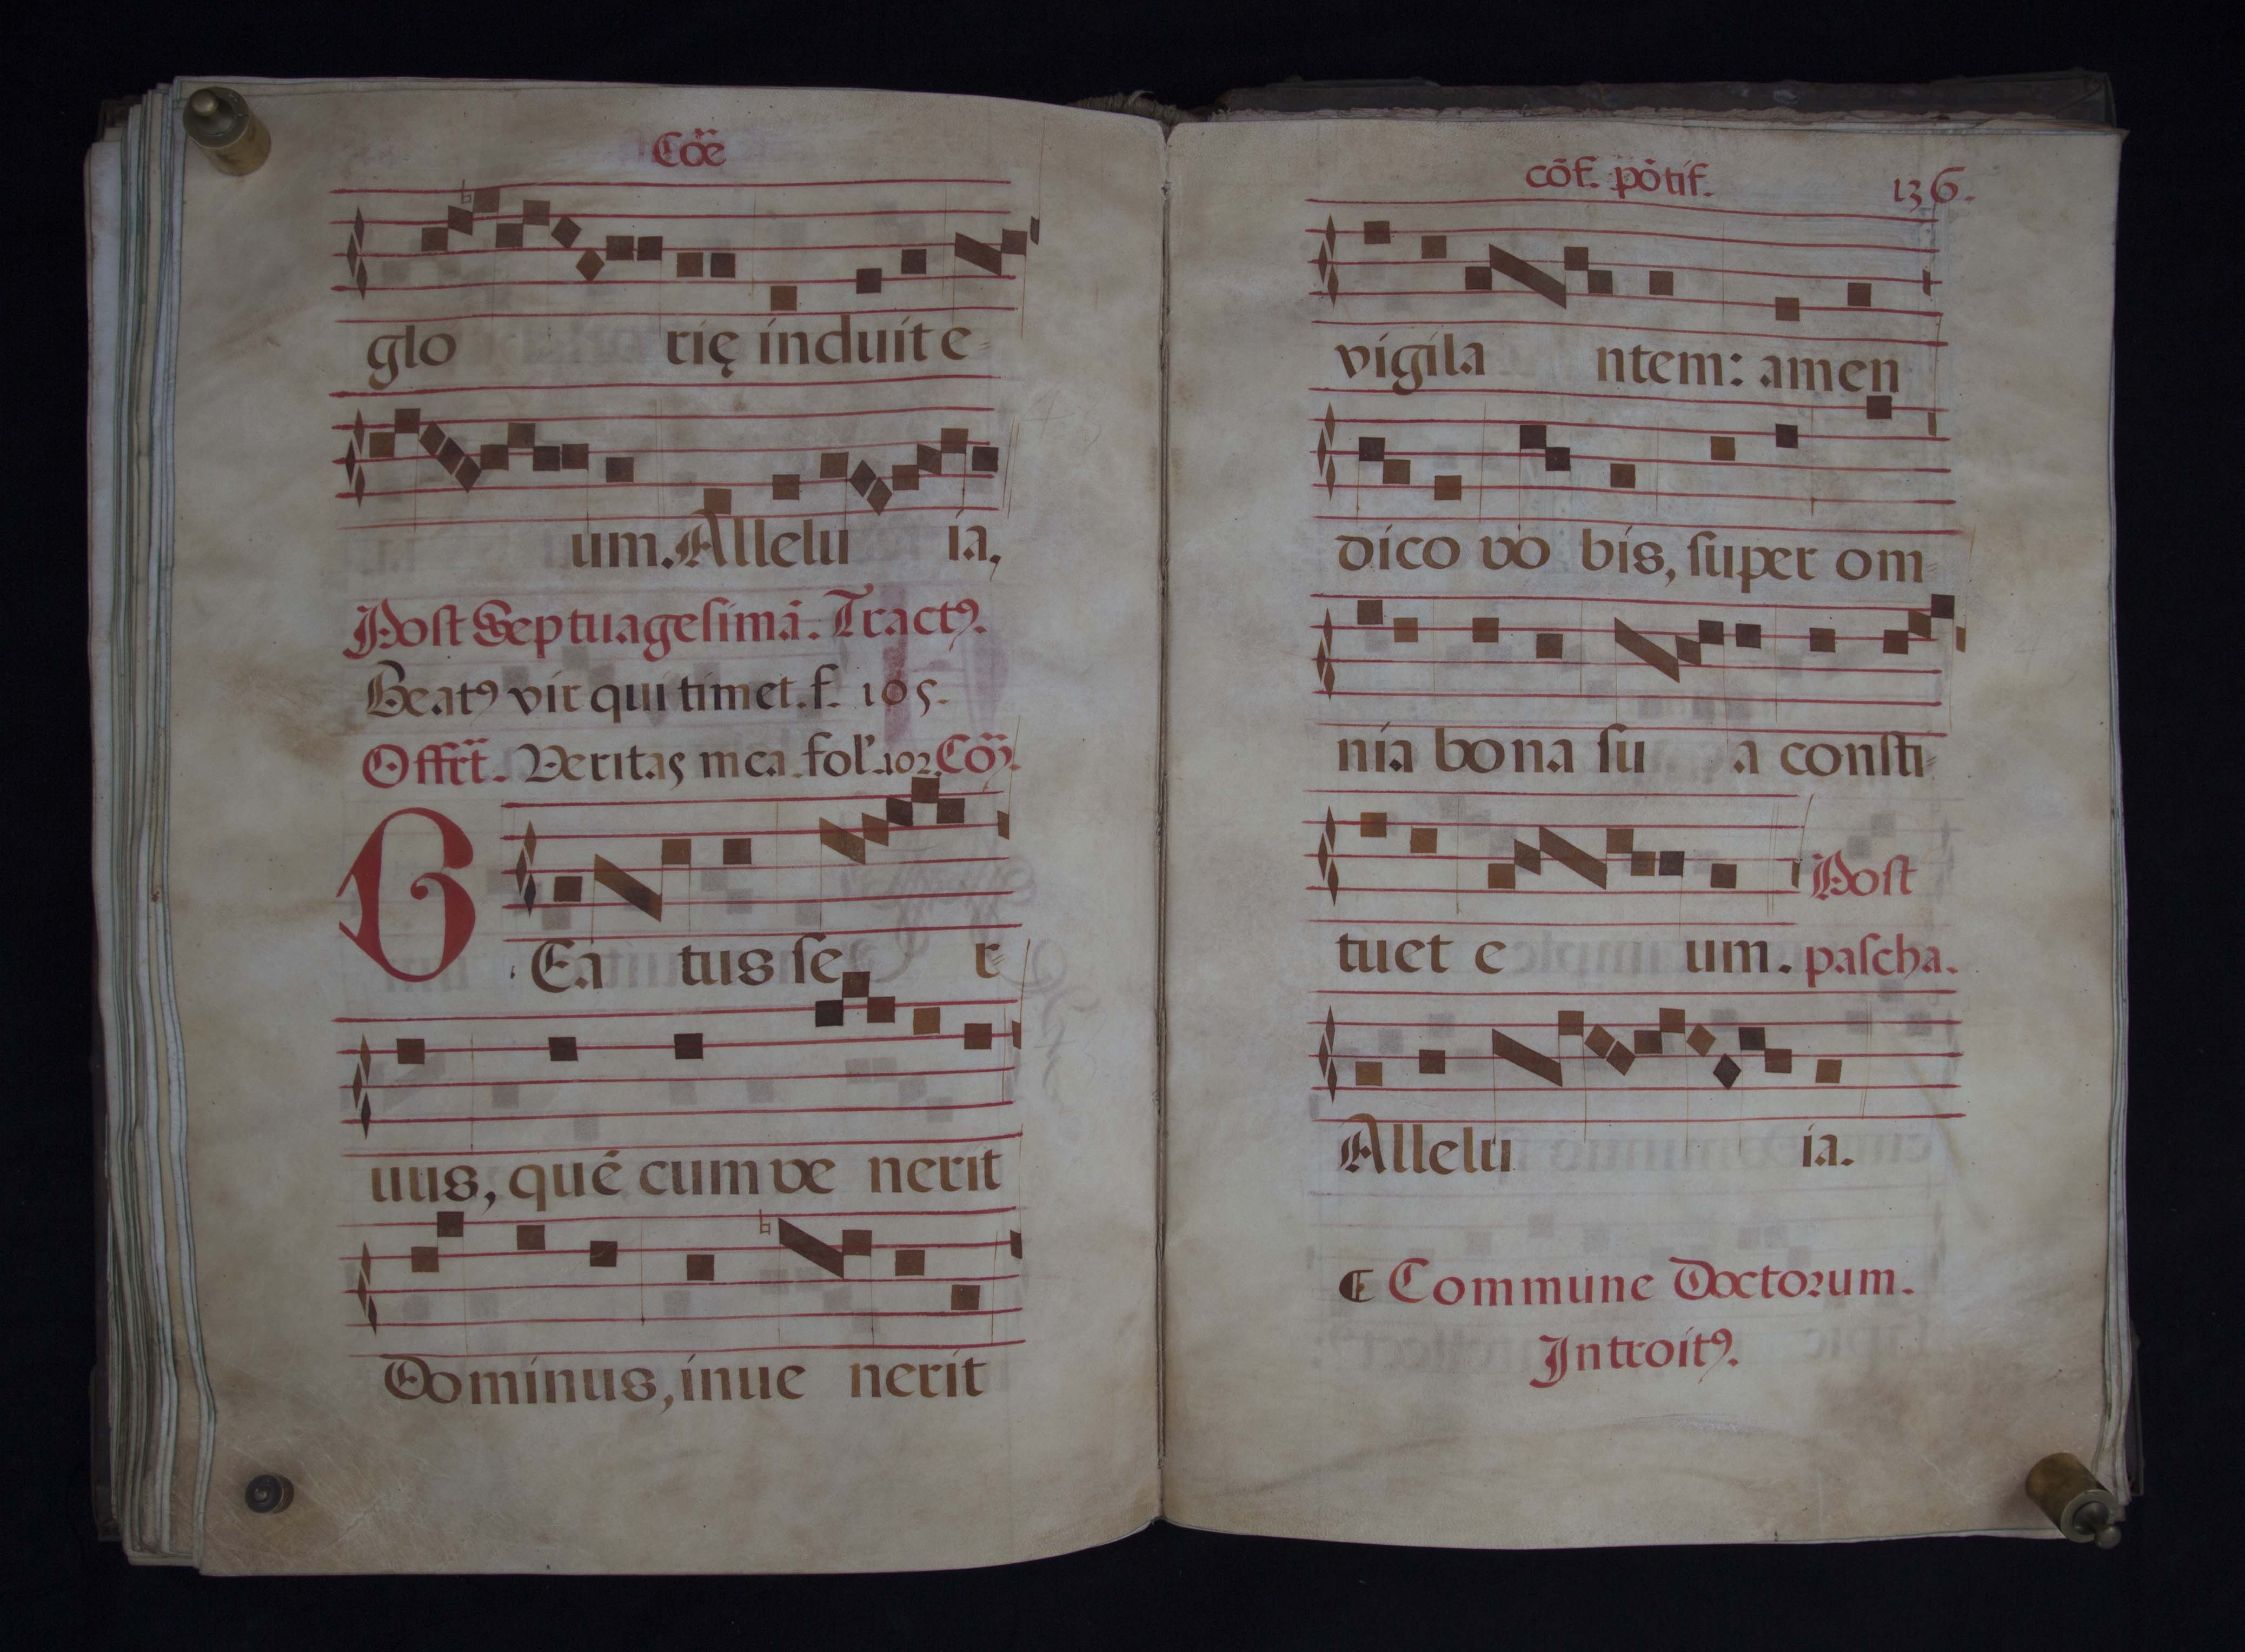 Cōe
glo rię induit e
um. Allelu ia,
Post Septuagesimā. Tractꝰ.
Beatꝰ vir qui timet. f. 105.
Offrt̄. Veritas mea. fol. 102. Cō.
BEa tus se r
uus, quē cum ve nerit
Dominus, inue nerit
cōf. pōtif. 136.
vigila ntem: amen
dico vo bis, super om
nia bona su a consti
Post
tuet e um. pascha.
Allelu ia.
Commune Doctorum.
Introitꝰ.